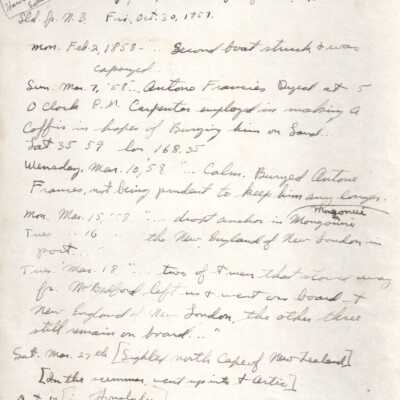 Sld. fr. N.B. Fri, Oct. 30, 1857.
Mon. Feb 2, 1858 - ... Second boat struck & was
capsized
Sun. Mar. 7, '58 ... Antone Francies Dyed at 5
O Clock P.M. Carpenter employed in making A
Coffin in hopes of Burying him on Land...
Lat 35 59 lon 168.35
Wensday, Mar. 10, '58 "... Calm. Buryed Antone
Frances, not being prudent to keep him any longer.
Mon. Mar. 15, '58 "... dropt anchor in
Tues ... 16 ... the New England of New London in
port..."
Tues Mar. 18 "... two of men that stowed away
fr. N. Bedford left us & went on board
New England of New London, the other three
still remain on board..."
Sat. Mar. 27th [Sighted north Cape of New Zealand]
[In the summer, went up into Arctic]